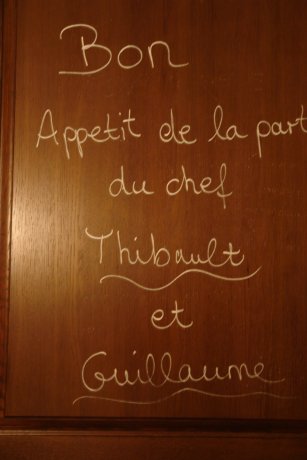 Bon
Appetit de la part
du chef
Thibault
et
Guillaume